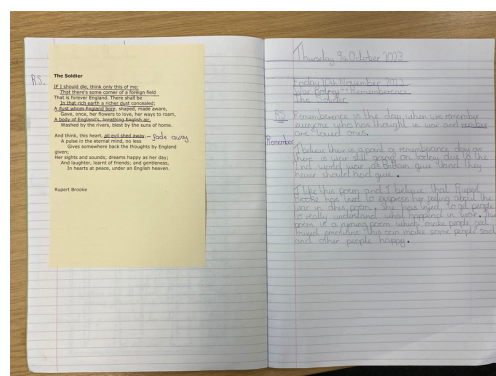 R.S.
The Soldier
IF I should die, think only this of me:
That there's some corner of a foreign field
That is forever England. There shall be
In that rich earth a richer dust concealed;
A dust whom England bore, shaped, made aware,
Gave, once, her flowers to love, her ways to roam,
A body of England's, breathing English air,
Washed by the rivers, blest by the suns of home.
And think, this heart, all evil shed away, - fade away
A pulse in the eternal mind, no less
Gives somewhere back the thoughts by England
given;
Her sights and sounds; dreams happy as her day;
And laughter, learnt of friends; and gentleness,
In hearts at peace, under an English heaven.
Rupert Brooke
Thursday October 2023
Friday November
Poetry Remembrance
The Soldier
R.S. Remembrance is the day when we remember
everyone who has in war and
are loved ones.
Remember
I believe there is a point a remembrance day as
there is a war still going on today due to the
2nd world war, as Britain give land they
never should had give.
I like this poem and I believe that Rupert
Brooke has tried to express her feeling about the
war in this poem. She has tried to get people
to really understand what happend in war.
poem is a rhyming poem which make people feel
mixed emotions this can make some people sad
and other people happy.